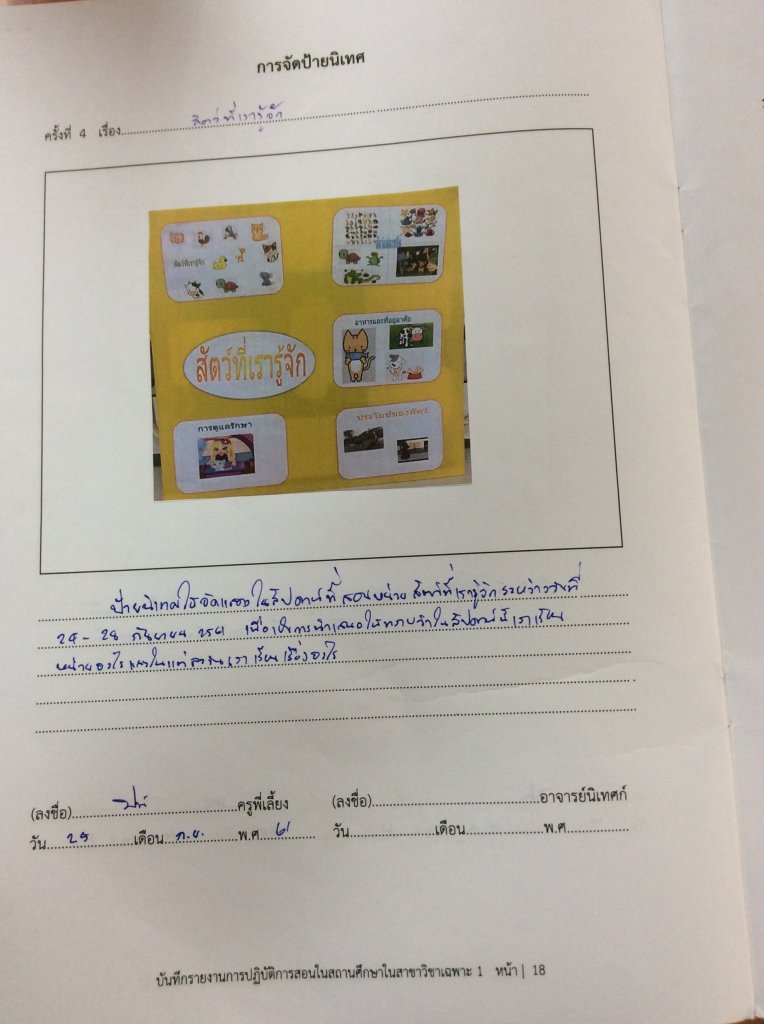 การจัดป้ายนิเทศ
ครั้งที่ 4 เรื่อง สัตว์ที่เรารู้จัก
สัตว์ที่เรารู้จัก
สัตว์ที่เรารู้จัก
อาหารและที่อยู่อาศัย
การดูแลรักษา
ประโยชน์ของสัตว์
ป้ายนิเทศใช้จัดแสดงในสัปดาห์ที่สอนหน่วย สัตว์ที่เรารู้จัก ระหว่างวันที่
24 - 28 กันยายน 2561 เพื่อเป็นการนำเสนอให้ทราบว่าในสัปดาห์นี้เราเรียน
หน่วยอะไร และในแต่ละวันเราเรียนเรื่องอะไร
(ลงชื่อ) ครูพี่เลี้ยง (ลงชื่อ) อาจารย์นิเทศก์
วัน เดือน ก.ย. พ.ศ. 61 วัน เดือน พ.ศ.
บันทึกรายงานการปฏิบัติการสอนในสถานศึกษาในสาขาวิชาเฉพาะ 1 หน้า | 18